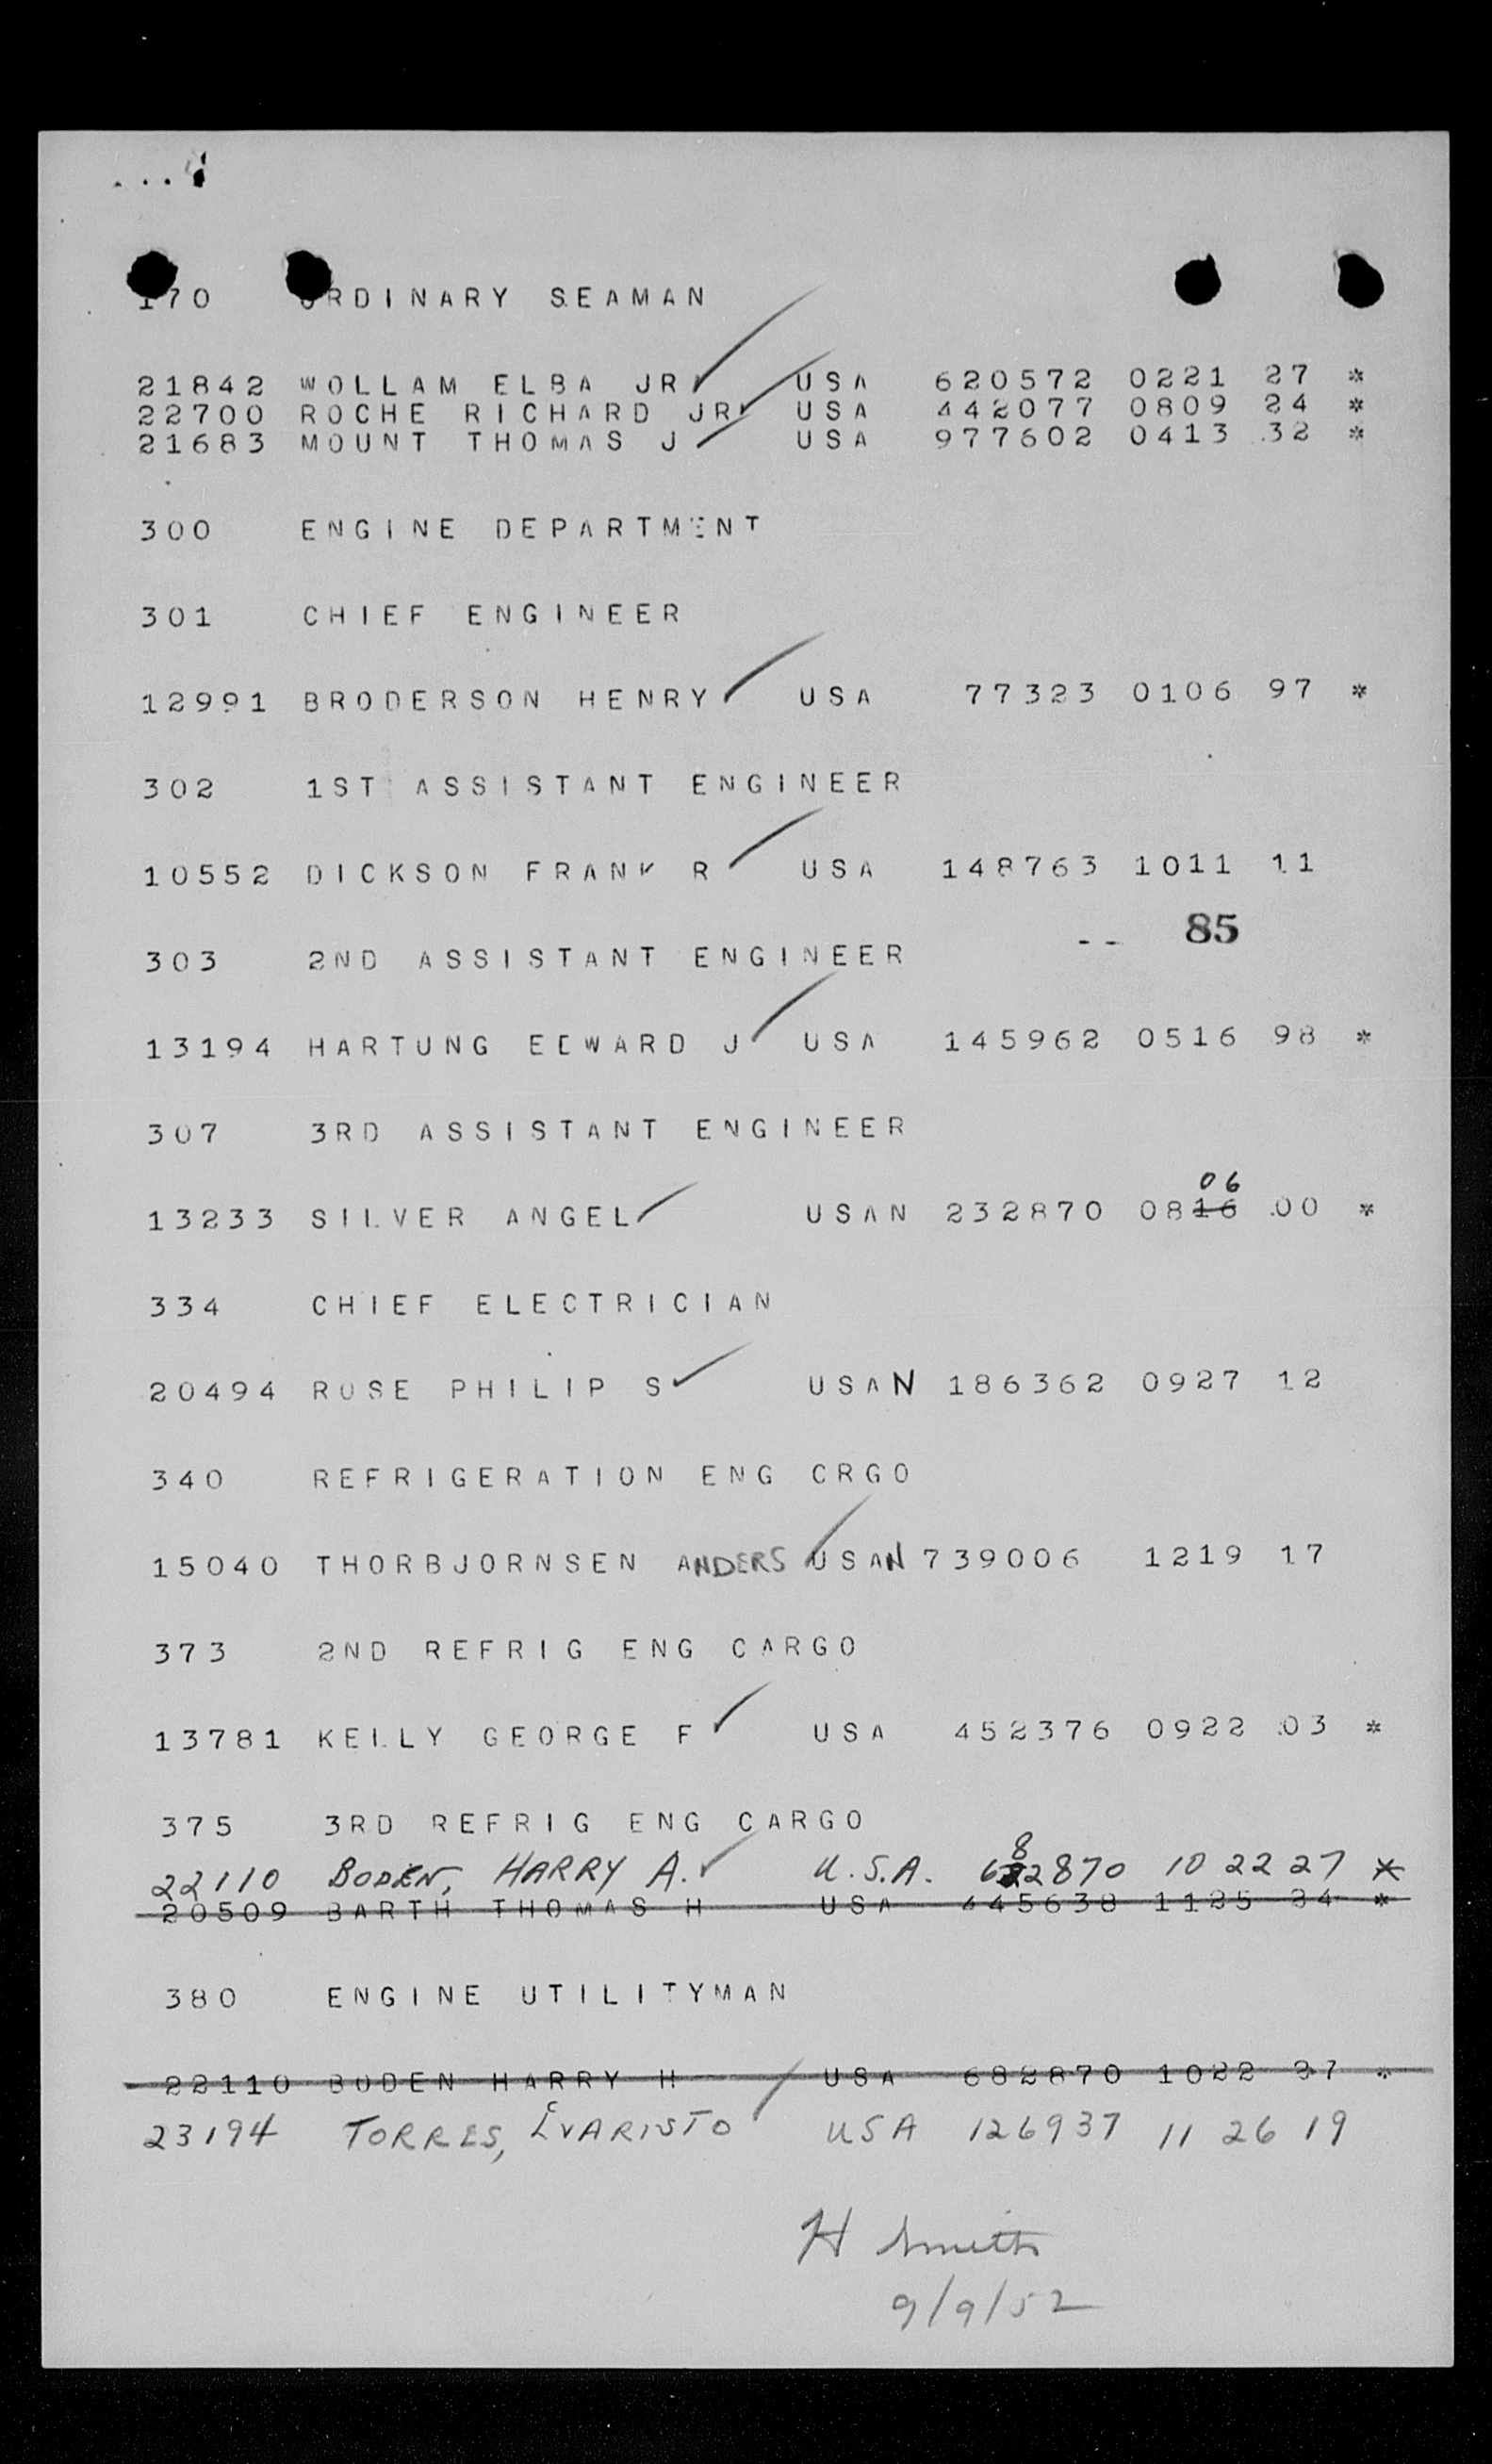 170 ORDINARY SEAMAN
21842 WOLLAM ELBA JR USA 620572 0221 27 *
22700 ROCHE RICHARD JR USA 442077 0809 24 *
21683 MOUNT THOMAS J USA 977602 0413 32 *
300 ENGINE DEPARTMENT
301 CHIEF ENGINEER
12991 BRODERSON HENRY USA 77323 0106 97 *
302 1ST ASSISTANT ENGINEER
10552 DICKSON FRANK R USA 148763 1011 11
-- 85
303 2ND ASSISTANT ENGINEER
13194 HARTUNG EDWARD J USA 145962 0516 98 *
307 3RD ASSISTANT ENGINEER
06
13233 SILVER ANGEL USAN 232870 0816 00 *
334 CHIEF ELECTRICIAN
20494 ROSE PHILIP S USAN 186362 0927 12
340 REFRIGERATION ENG CRGO
15040 THORBJORNSEN ANDERS USAN 739006 1219 17
373 2ND REFRIG ENG CARGO
13781 KELLY GEORGE F USA 452376 0922 03 *
375 3RD REFRIG ENG CARGO
8
22110 BODEN, HARRY A. U.S.A. 622870 10 22 27 *
20509 BARTH THOMAS H USA 445638 1125 24 *
380 ENGINE UTILITYMAN
22110 BODEN HARRY H USA 682870 1022 27 *
23194 TORRES, EVARISTO USA 126937 11 26 19
H Smith
9/9/52